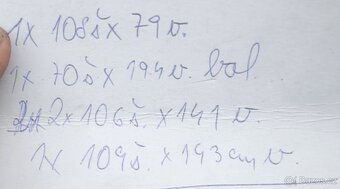 1x 108š x 79 v.
1x 70š x 194 v. bal
2x 106š. x 141 v.
1x 109š. x 143 cm v.